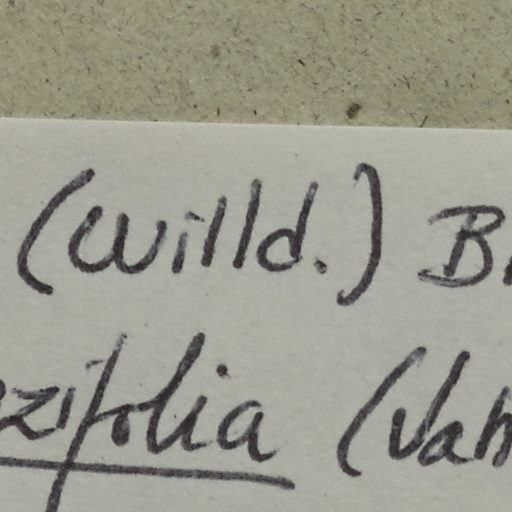 (Willd.) B
zifolia (Vah